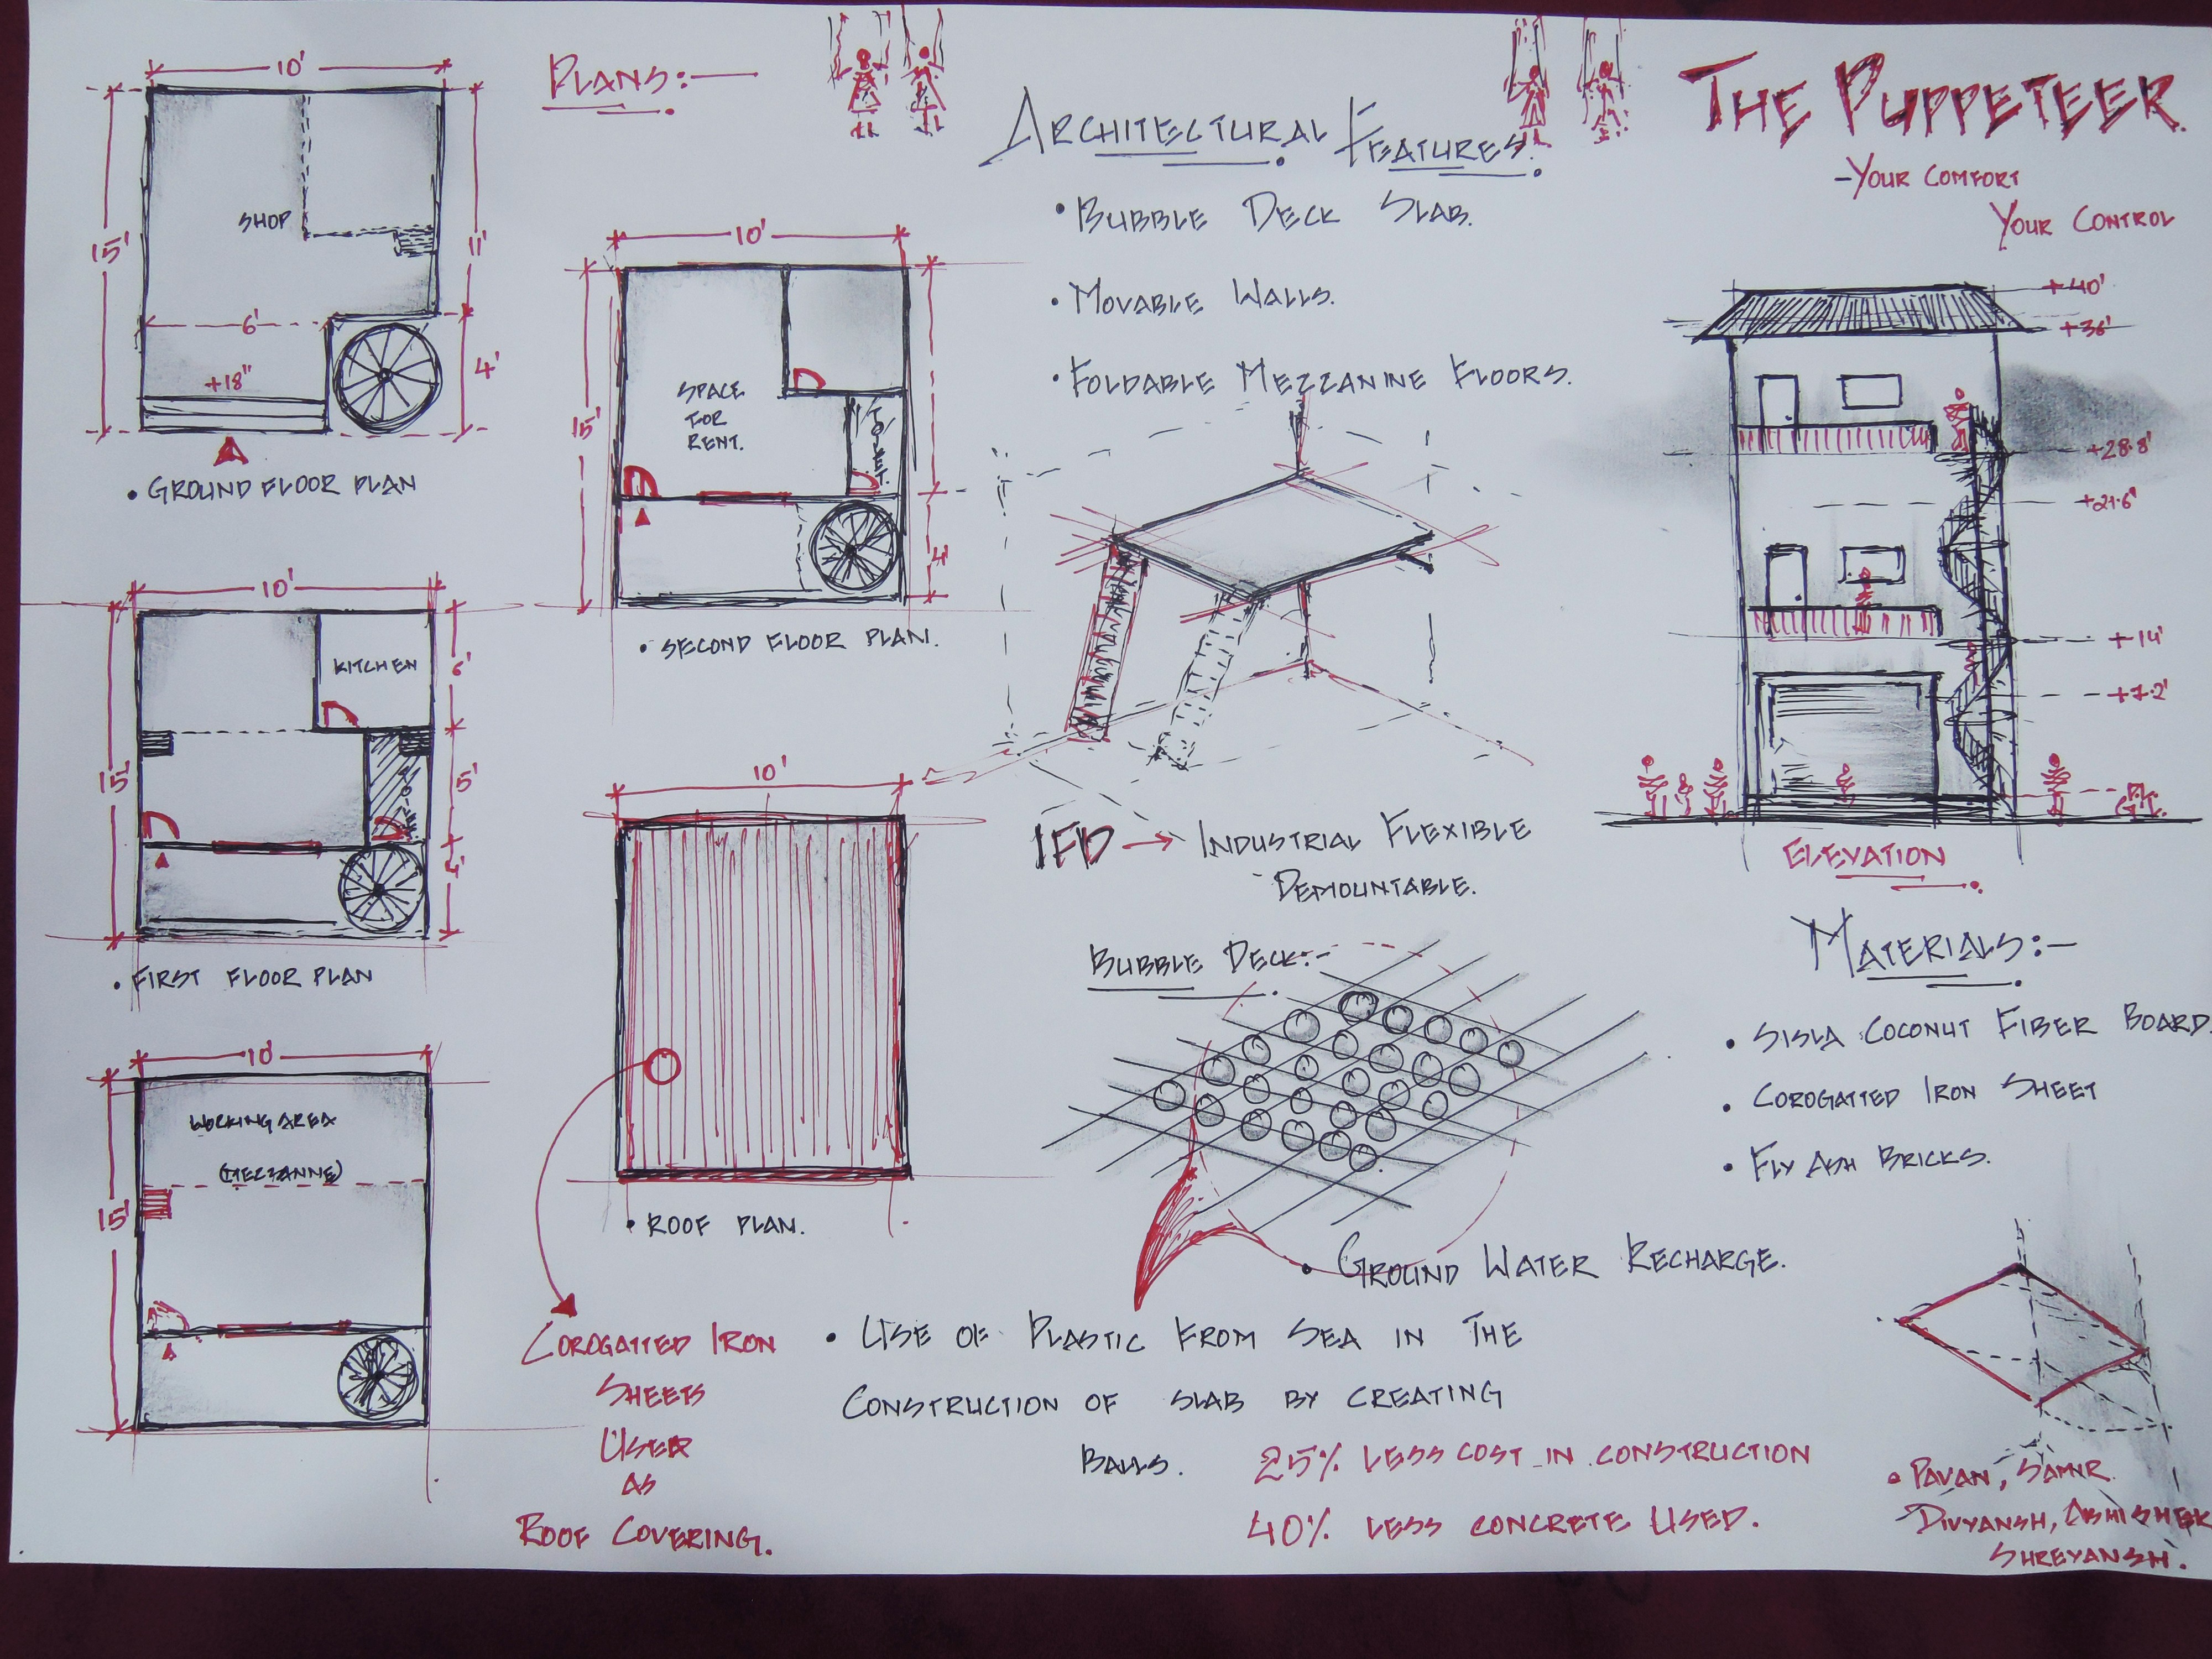 PLANS:—
10'
15'
11'
SHOP
6'
4'
+18"
• GROUND FLOOR PLAN
10'
15'
SPACE
FOR
RENT.
TOILET.
4'
• SECOND FLOOR PLAN.
10'
15'
KITCHEN
6'
5'
4'
• FIRST FLOOR PLAN
10'
15'
WORKING AREA
(MEZZANNE)
10'
• ROOF PLAN.
COROGATTED IRON
SHEETS
USED
AS
ROOF COVERING.
ARCHITECTURAL FEATURES.
• BUBBLE DECK SLAB.
• MOVABLE WALLS.
• FOLDABLE MEZZANINE FLOORS.
IFD → INDUSTRIAL FLEXIBLE
DEMOUNTABLE.
BUBBLE DECK:-
• GROUND WATER RECHARGE.
• USE OF PLASTIC FROM SEA IN THE
CONSTRUCTION OF SLAB BY CREATING
BALLS.
25% LESS COST IN CONSTRUCTION
40% LESS CONCRETE USED.
THE PUPPETEER.
-YOUR COMFORT
YOUR CONTROL
+40'
+36'
+28.8'
+21.6'
+14'
+7.2'
ELEVATION
MATERIALS:-
• SISLA COCONUT FIBER BOARD.
• COROGATTED IRON SHEET
• FLY ASH BRICKS.
• PAVAN, SAMIR
DIVYANSH, ABHISHEK
SHREYANSH.